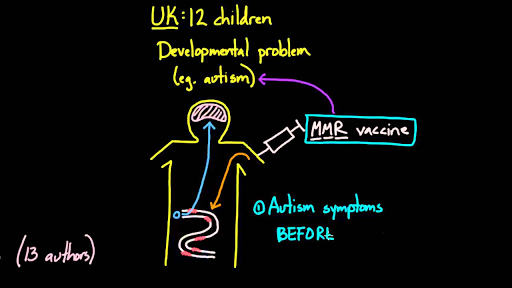 UK: 12 children
Developmental problem
(eg. autism)
MMR vaccine
① Autism symptoms
BEFORE
(13 authors)